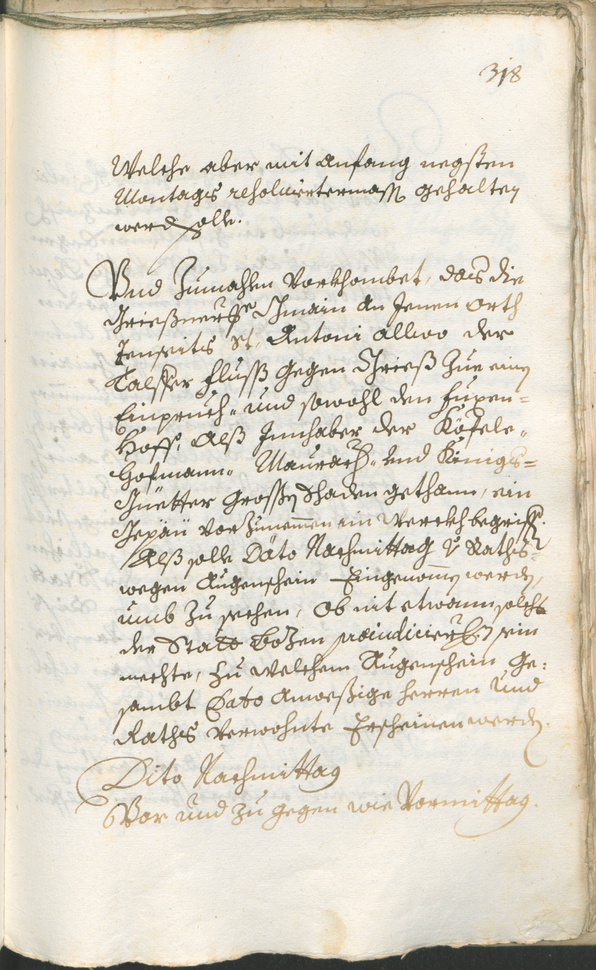 318
Welche aber mit Anfang negsten
Montags resolviertermass gehalten
werd solle.
Vnd Zumahlen Vorkhombet, das die
Griesnerische Gmain an Jenen Orth
Jenseits St. Antoni allwo der
Talfer fluss gegen Gries Zue ein
Einpruch und sowohl den
Hoff, Alss Innhaber der Köfele-
Hofmann- Maurach- und Königs-
Güetter grossen schaden gethann, ein
Gepäu Vorzunemmen im Werckh begriffen.
Alss solle Dato Nachmittag v Raths-
wegen Augenschein Eingenomen werden,
umb zu sechen, Ob nit etwann solches
der Statt Bozen praeiudicierlich sein
mechte, zu welchem Augenschein ge-
sambt Dato Anwessige Herren und
Raths Verwohnte Erscheinen werden.
Dito Nachmittag
Vor und zu gegen wie Vormittag.